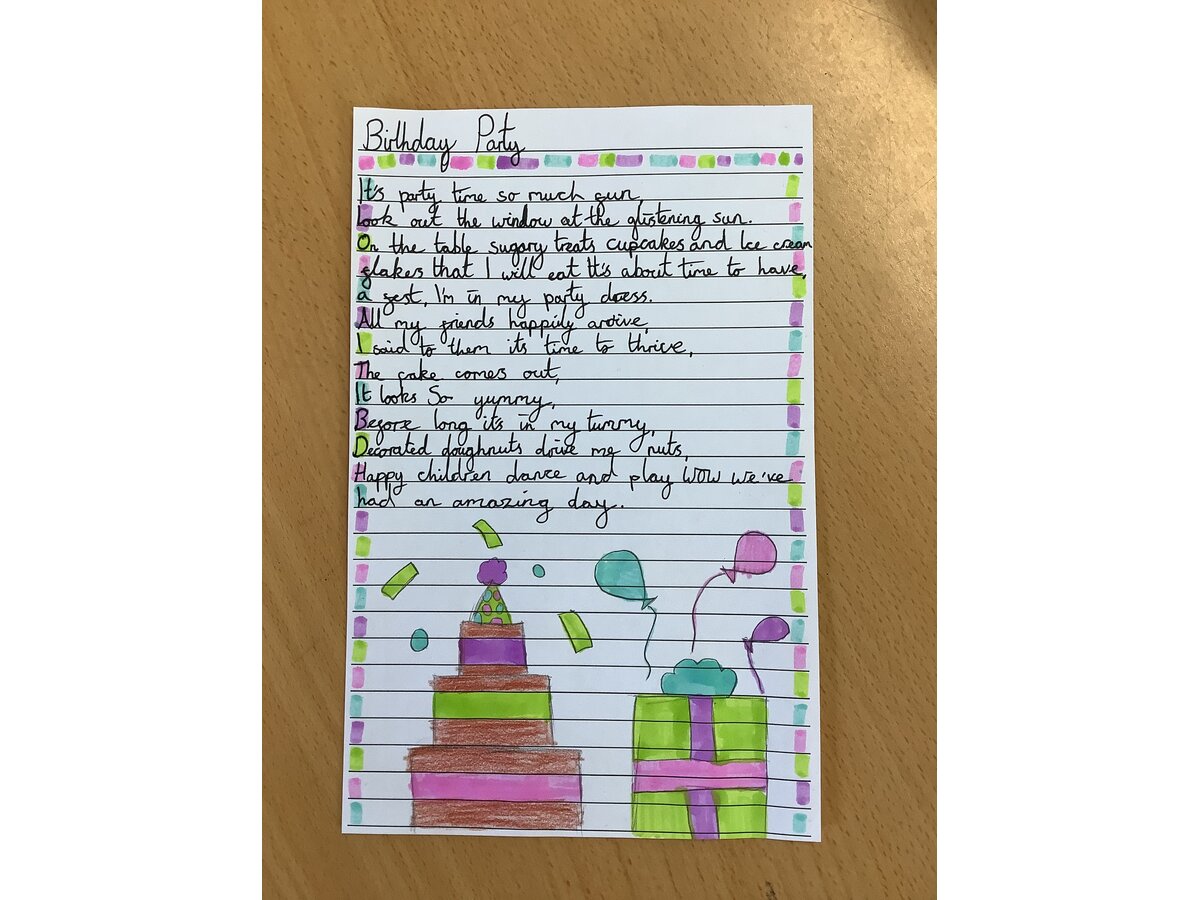 Birthday Party
It's party time so much fun,
Look out the window at the glistening sun.
On the table sugary treats cupcakes and Ice cream
flakes that I will eat It's about time to have,
a fest, I'm in my party dress.
All my friends happily arrive,
I said to them its time to thrive,
The cake comes out,
It looks So yummy,
Before long it's in my tummy,
Decorated doughnuts drive me nuts,
Happy children dance and play WOW we've
had an amazing day.